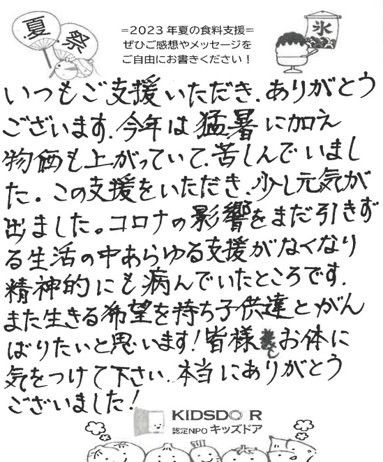 夏祭
氷
=2023年夏の食料支援=
ぜひご感想やメッセージを
ご自由にお書きください！
いつもご支援いただき、ありがとう
ございます。今年は猛暑に加え
物価も上がっていて、苦しんでいまし
た。この支援をいただき、少し元気が
出ました。コロナの影響をまだ引きず
る生活の中あらゆる支援がなくなり
精神的にも病んでいたところです。
また生きる希望を持ち子供達とがん
ばりたいと思います!皆様 お体に
気をつけて下さい。本当にありがとう
ございました!
KIDSDOOR
認定NPO キッズドア